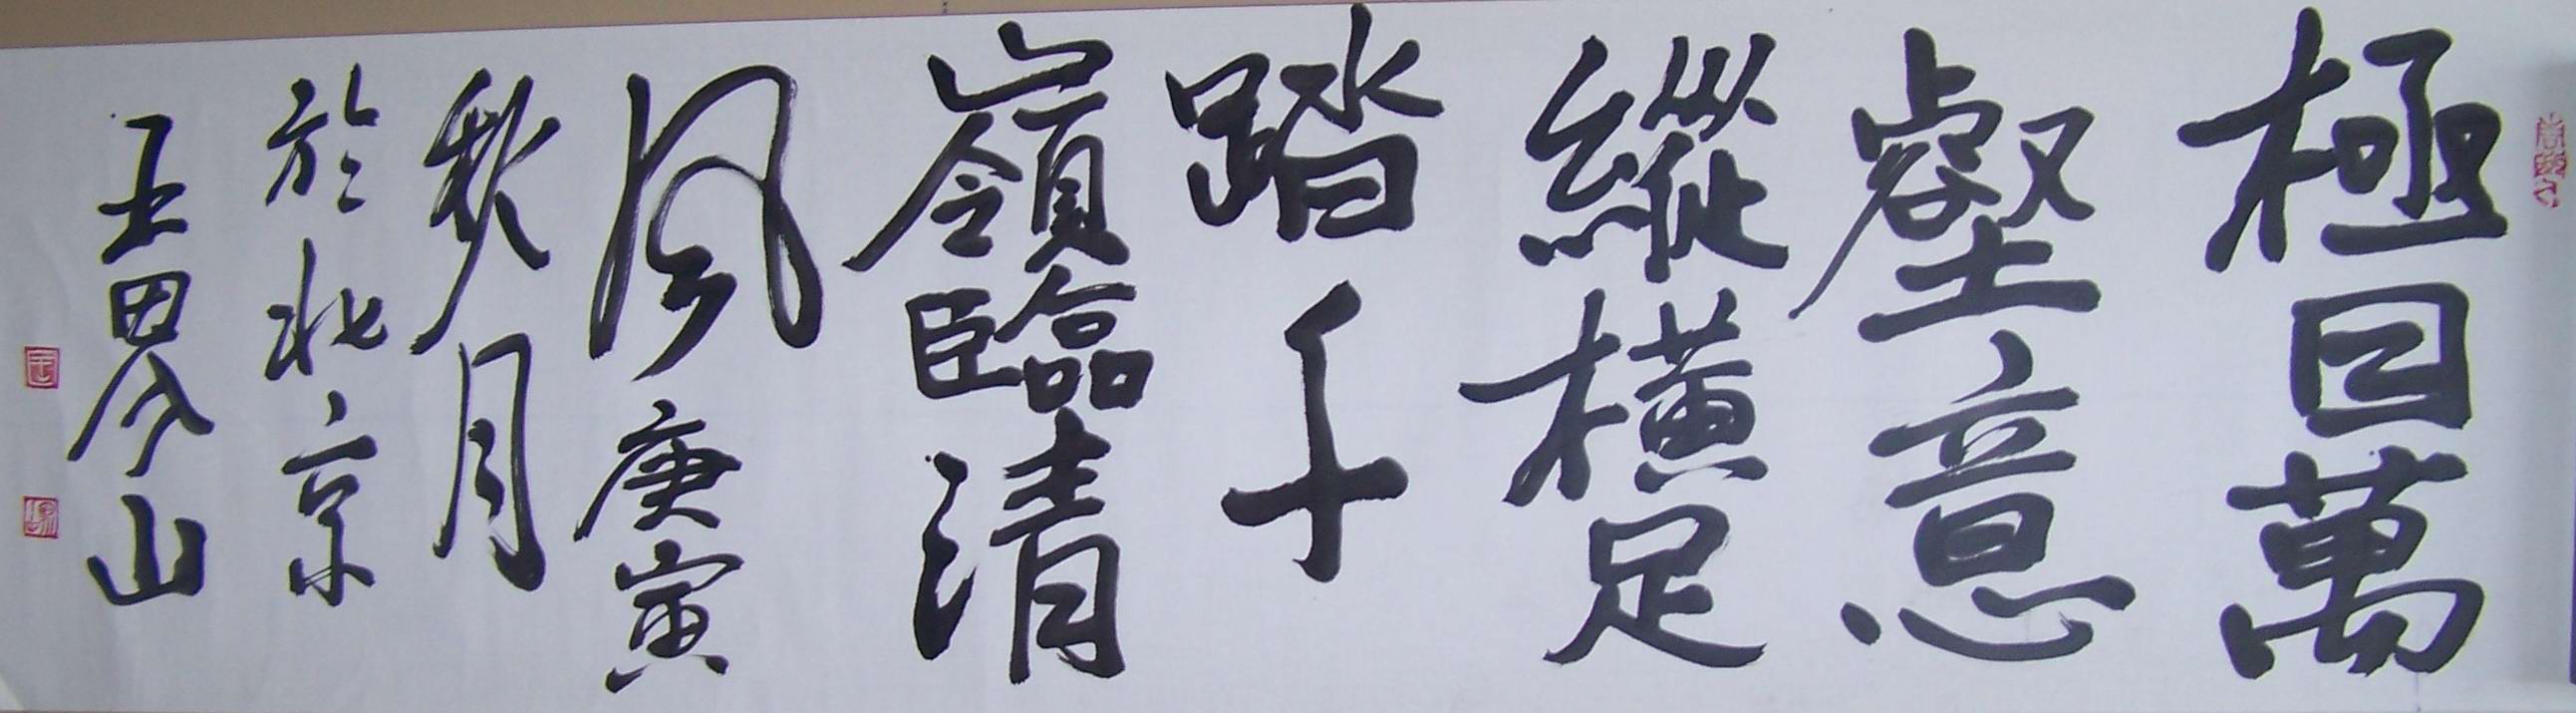 極目萬
壑意
縱橫足
踏千
嶺臨清
风庚寅
秋月
於北京
王界山